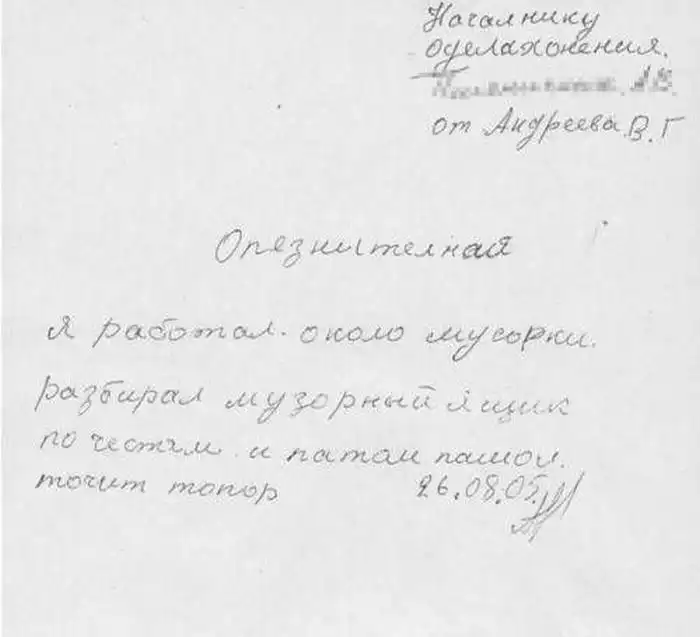 Началнику
оделахонения.
от Андреева В. Г
Опезнителная
я работал. около мусорки.
разбирал музорный ящик
по честям. и патом пашол.
точит топор 26.08.05.